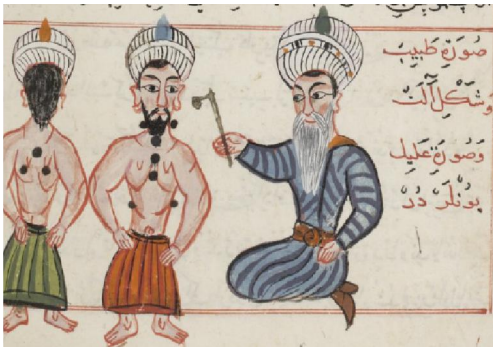 صورة طبيب
وشكل آلت
وصورة عليل
بونلر در